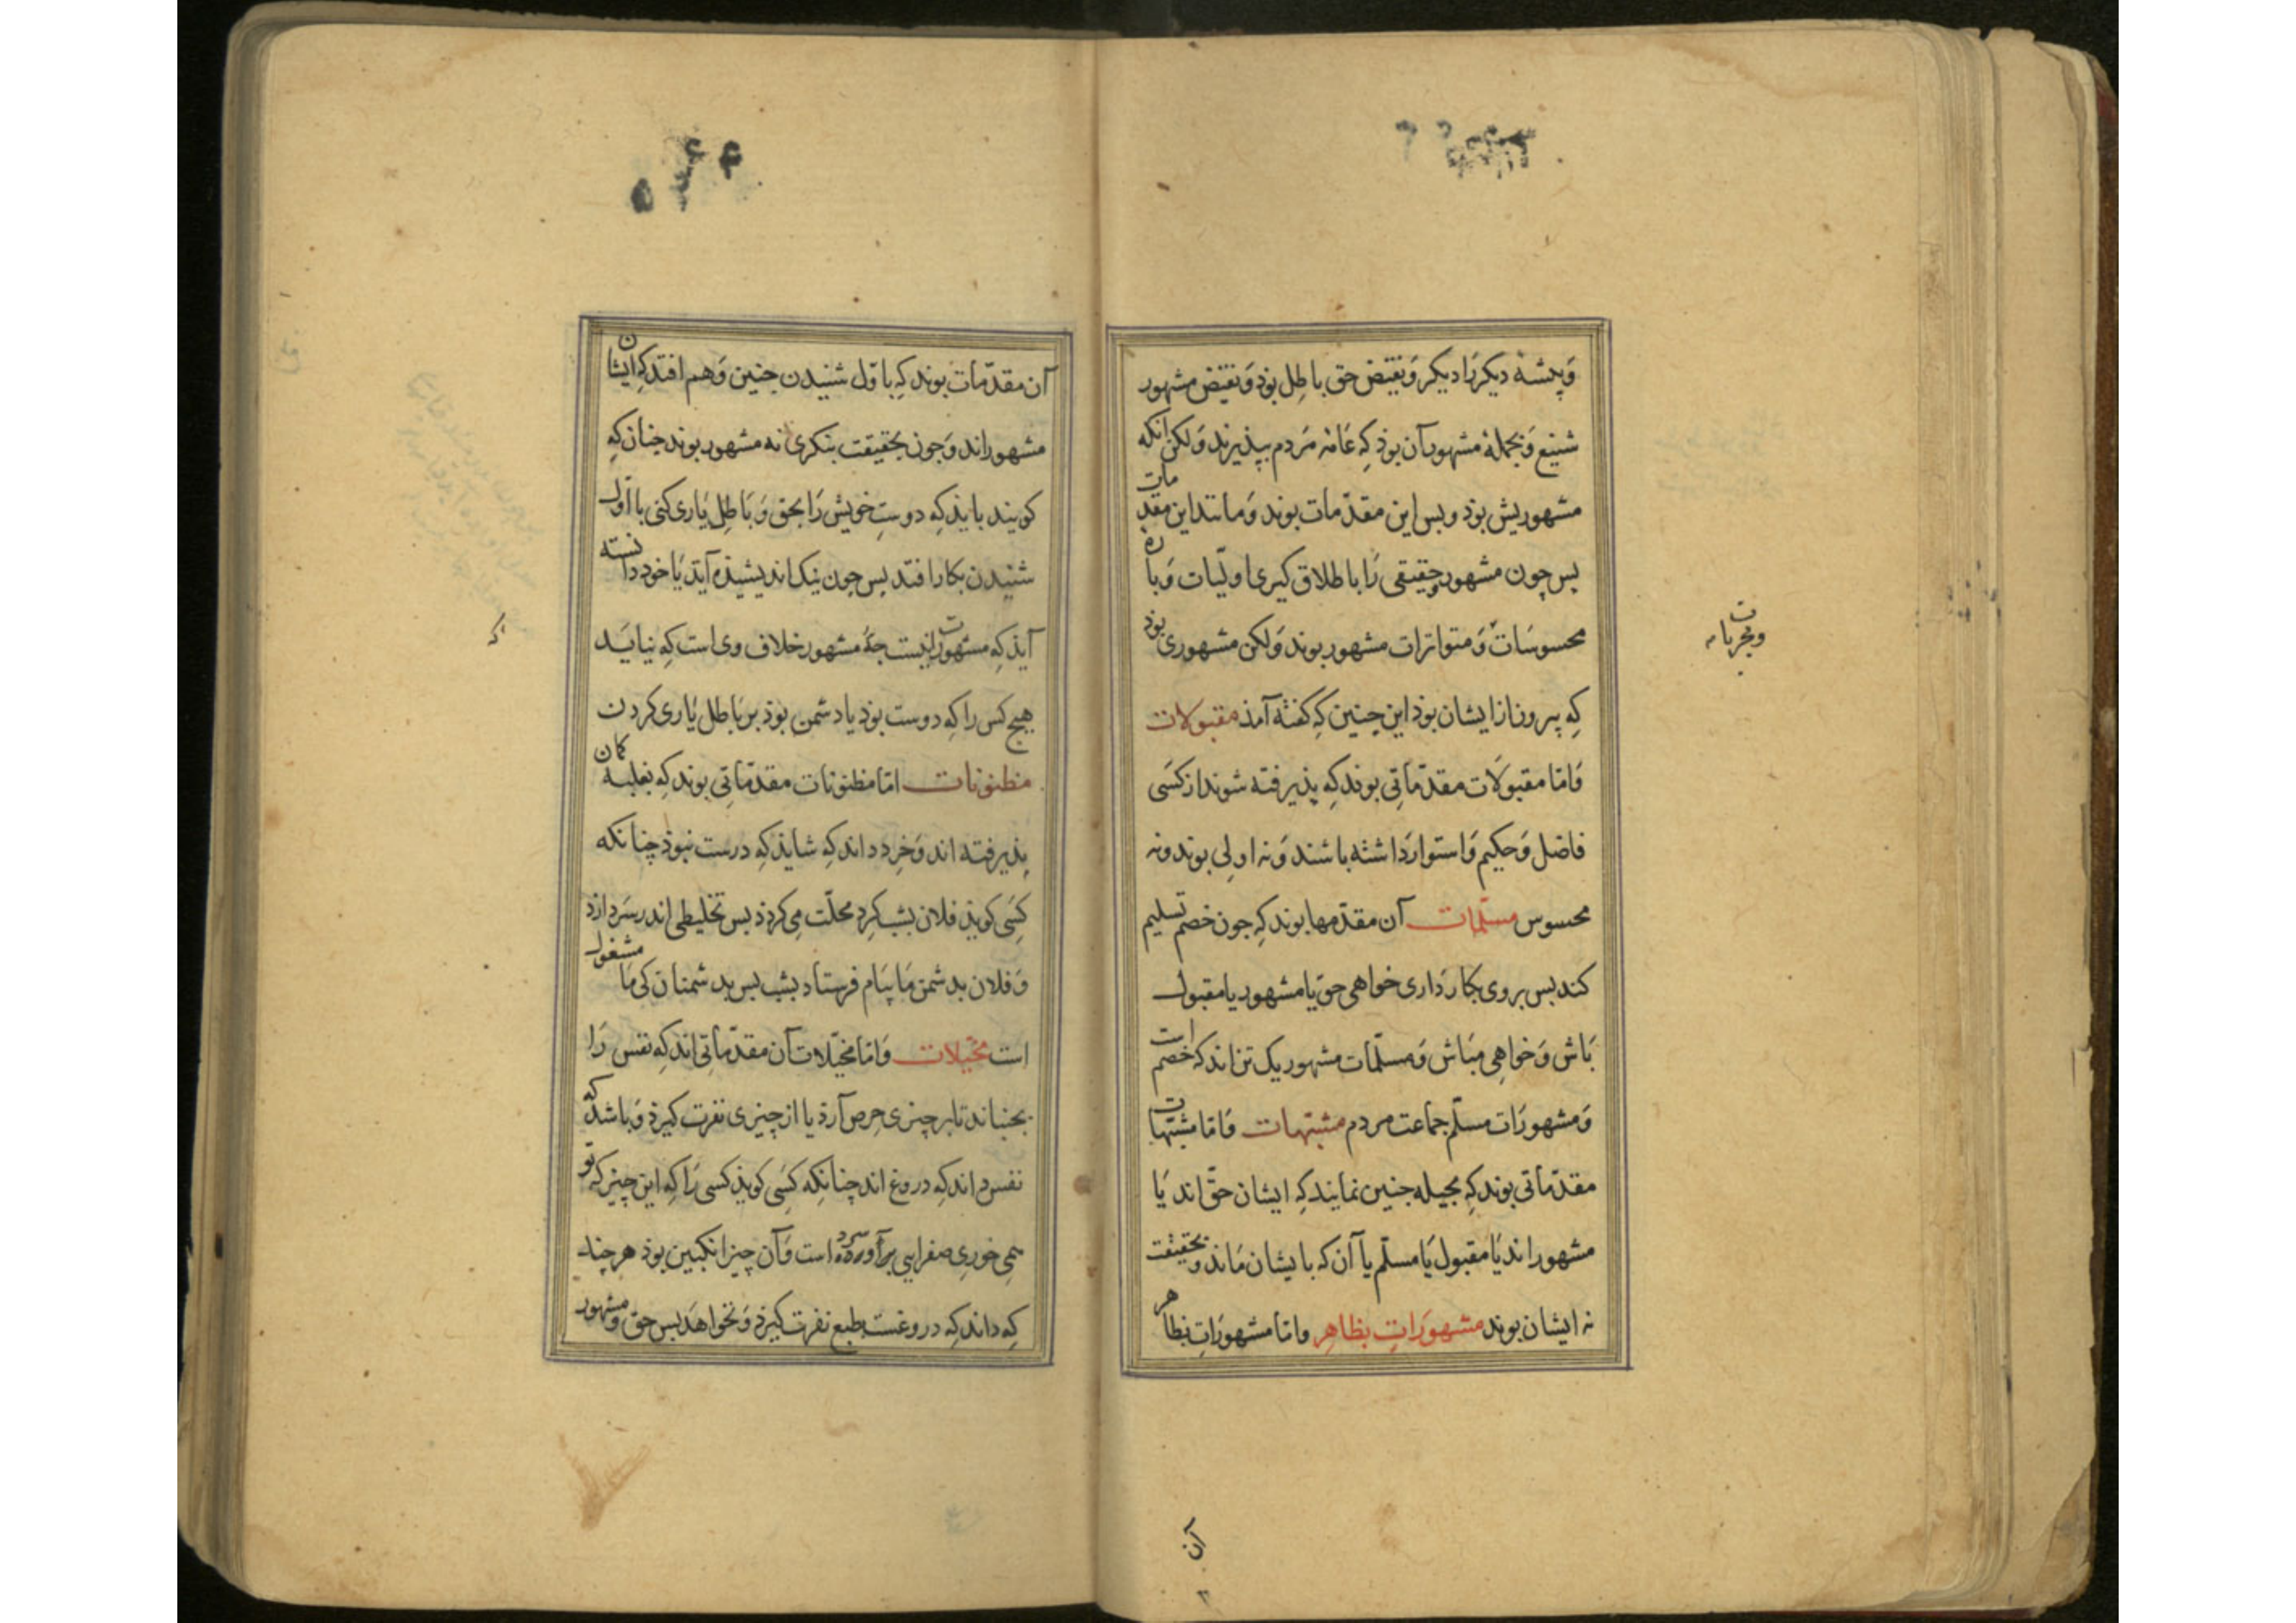 وَپیشهٔ دیکر رَا دیکر وَ نقیض حق باطل بوَد وَ نقیض مشهور
شنیع وَ بجملهٔ مشهور آن بوذ کِه عَامهٔ مَردم بپذیرند وَلکن آنکه
مشهوریش بوذ و بس این مقدّمات بوند وَ مانند این مقدمات
بس چون مشهور حقیقی رَا با طلاق کیری اولیّات وَ باره
محسوسَات وَ متواترات مشهور بوند وَلکن مشهوری بوذ
وتجربات
کِه بیرون از ایشان بوذ این چنین کِه کفته آمذ مقبولات
وَامّا مقبولَات مقدّماتِی بوند کِه پذیرفته شوند از کسَی
فاضل وَ حکیم وَ استوار دَاشته باشند وَ نه اولِی بوند و نه
محسوس مسلّمات آن مقدّمها بوند کِه جون خصم تسلیم
کند بس بر وی بکار دَاری خواهی حق یا مشهور یا مقبول
بَاش وَ خواهِی مبَاش وَ مسلّمات مشهور یک تن اند که خصم است
وَ مشهورَات مسلّم جماعت مردم مشبّهات وَامّا مشبّهات
مقدّماتی بوند کِه بحیله جنین نمایند کِه ایشان حقّ اند یَا
مشهور اند یَا مقبول یَا مسلّم یا آن که بایشان مَاند و بحقیقت
نه ایشان بوند مشهورَاتِ بظاهِر وامّا مشهورَاتِ بظاهر
آن
آن مقدّمات بوند کِه باوّل شنیدن جنین وَهم افتد کِه ایشان
مشهور اند وَ جون بحقیقت بنکری نه مشهور بوند جنان کِه
کویند بایذ کِه دوستِ خویش رَا بحق وَ بَاطِل یَاری کنی با اوّل
شنیدن بکار افتد بس چون نیک اندیشیذه آیذ یَا خود دانسته
آیذ کِه مشهور نیست جهٔ مشهور خلاف وی است کِه نبایَد
هیچ کس را کِه دوست بوذ یا دشمن بوذ بر بَاطل یَاری کردن
مظنونات امّا مظنونات مقدّماتِی بوند کِه بغلبهٔ کمان
پذیرفته اند وَ خِرد داند کِه شاید کِه درست نبوذ چنانکه
کسَی کویذ فلان بشب کِرد محلّت مِی کردذ بس تخلیطی اندر سَر دارذ
وَ فلان بدشمن مَا پیَام فرستاد بشب بس بدشمنان کی مَا مشغول
است مخیّلات وَامّا مخیّلات آن مقدّماتِی اند کِه نفس رَا
بجنباند تا بر چیزی حِرص آرذ یا از چیزی نفرت کیرذ وَ باشد که
نفس داند کِه دروغ اند چنانکِه کسَی کویذ کسی رَا کِه این چیز که تو
مِی خورِی صفرایی برآورده است وَ آن چیز انکبین بوذ هر چند
کِه داند کِه دروغست طبع نفرت کیرذ وَ نخواهَذ بس حق و مشهور